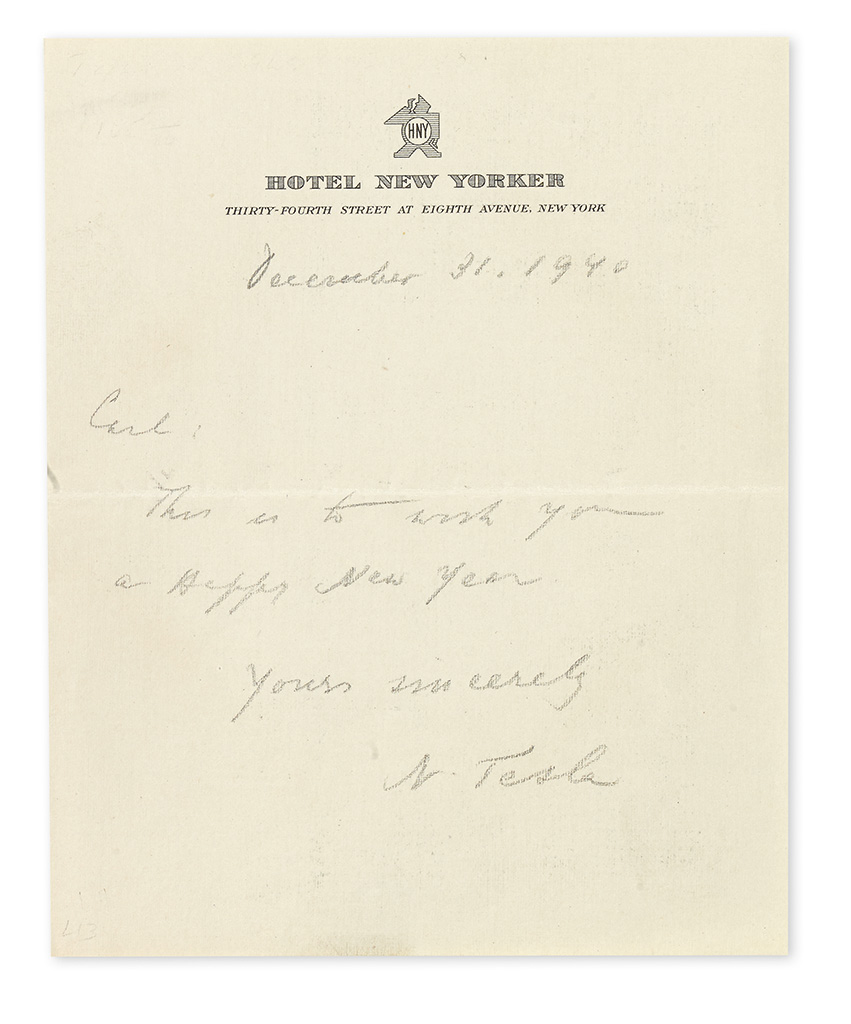 HNY
HOTEL NEW YORKER
THIRTY-FOURTH STREET AT EIGHTH AVENUE, NEW YORK
December 31. 1940
Carl:
This is to wish you
a Happy New Year
Yours sincerely
N. Tesla